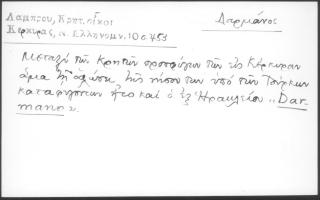 Λαμπρου, Κρητ. οἶκοι
Κερκύρας, Ν. Ελληνομν. 10 σ. 453
Δαρμάνος
Μεταξύ τῶν Κρητῶν προσφύγων τῶν εἰς Κέρκυραν
ἅμα τῇ ἁλώσει τῆς νήσου των ὑπό τῶν Τούρκων
καταφυγόντων ἦτο καί ὁ ἐξ Ἡρακλείου „Dar-
mano".